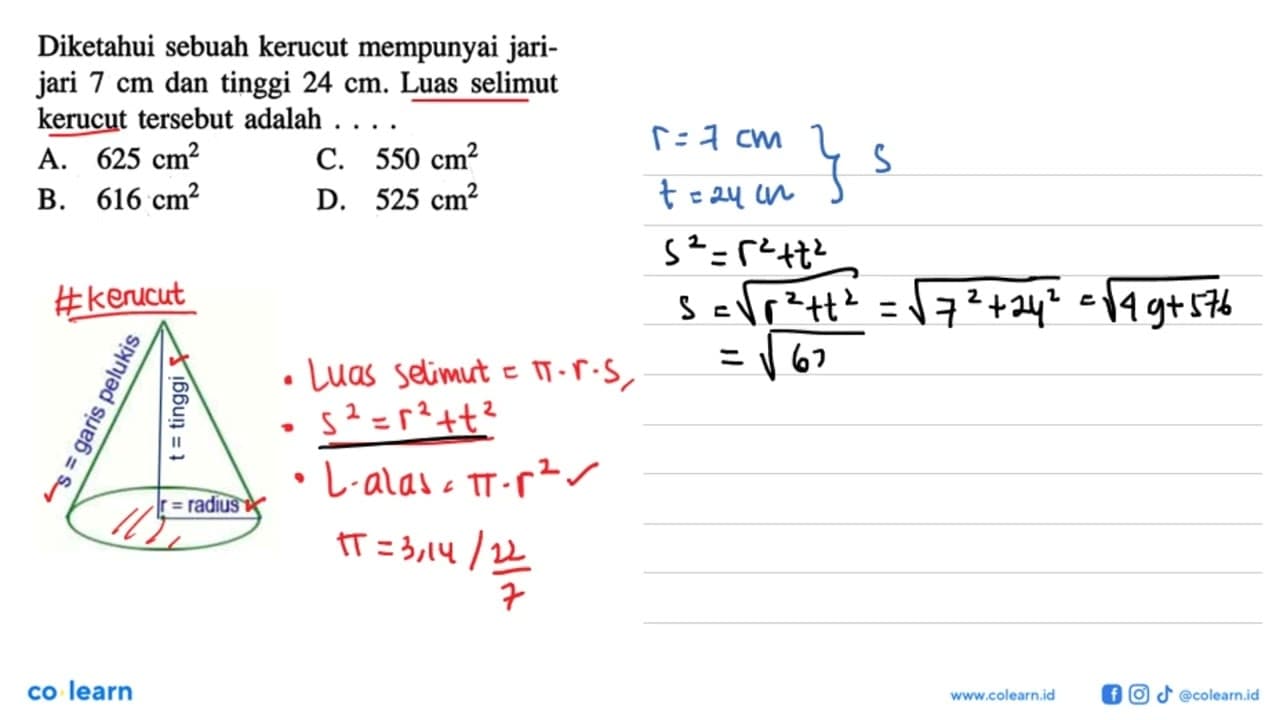 Diketahui sebuah kerucut mempunyai jari-
jari 7 cm dan tinggi 24 cm. Luas selimut
kerucut tersebut adalah . . . .
A. 625 cm² C. 550 cm²
B. 616 cm² D. 525 cm²
#kerucut
s = garis pelukis
t = tinggi
r = radius
• Luas selimut = π.r.s,
• s² = r² + t²
• L.alas = π.r² ✓
π = 3,14 / 22/7
r = 7 cm
t = 24 cm } s
s² = r² + t²
s = √r² + t² = √7² + 24² = √49 + 576
= √62
co learn
www.colearn.id
@colearn.id